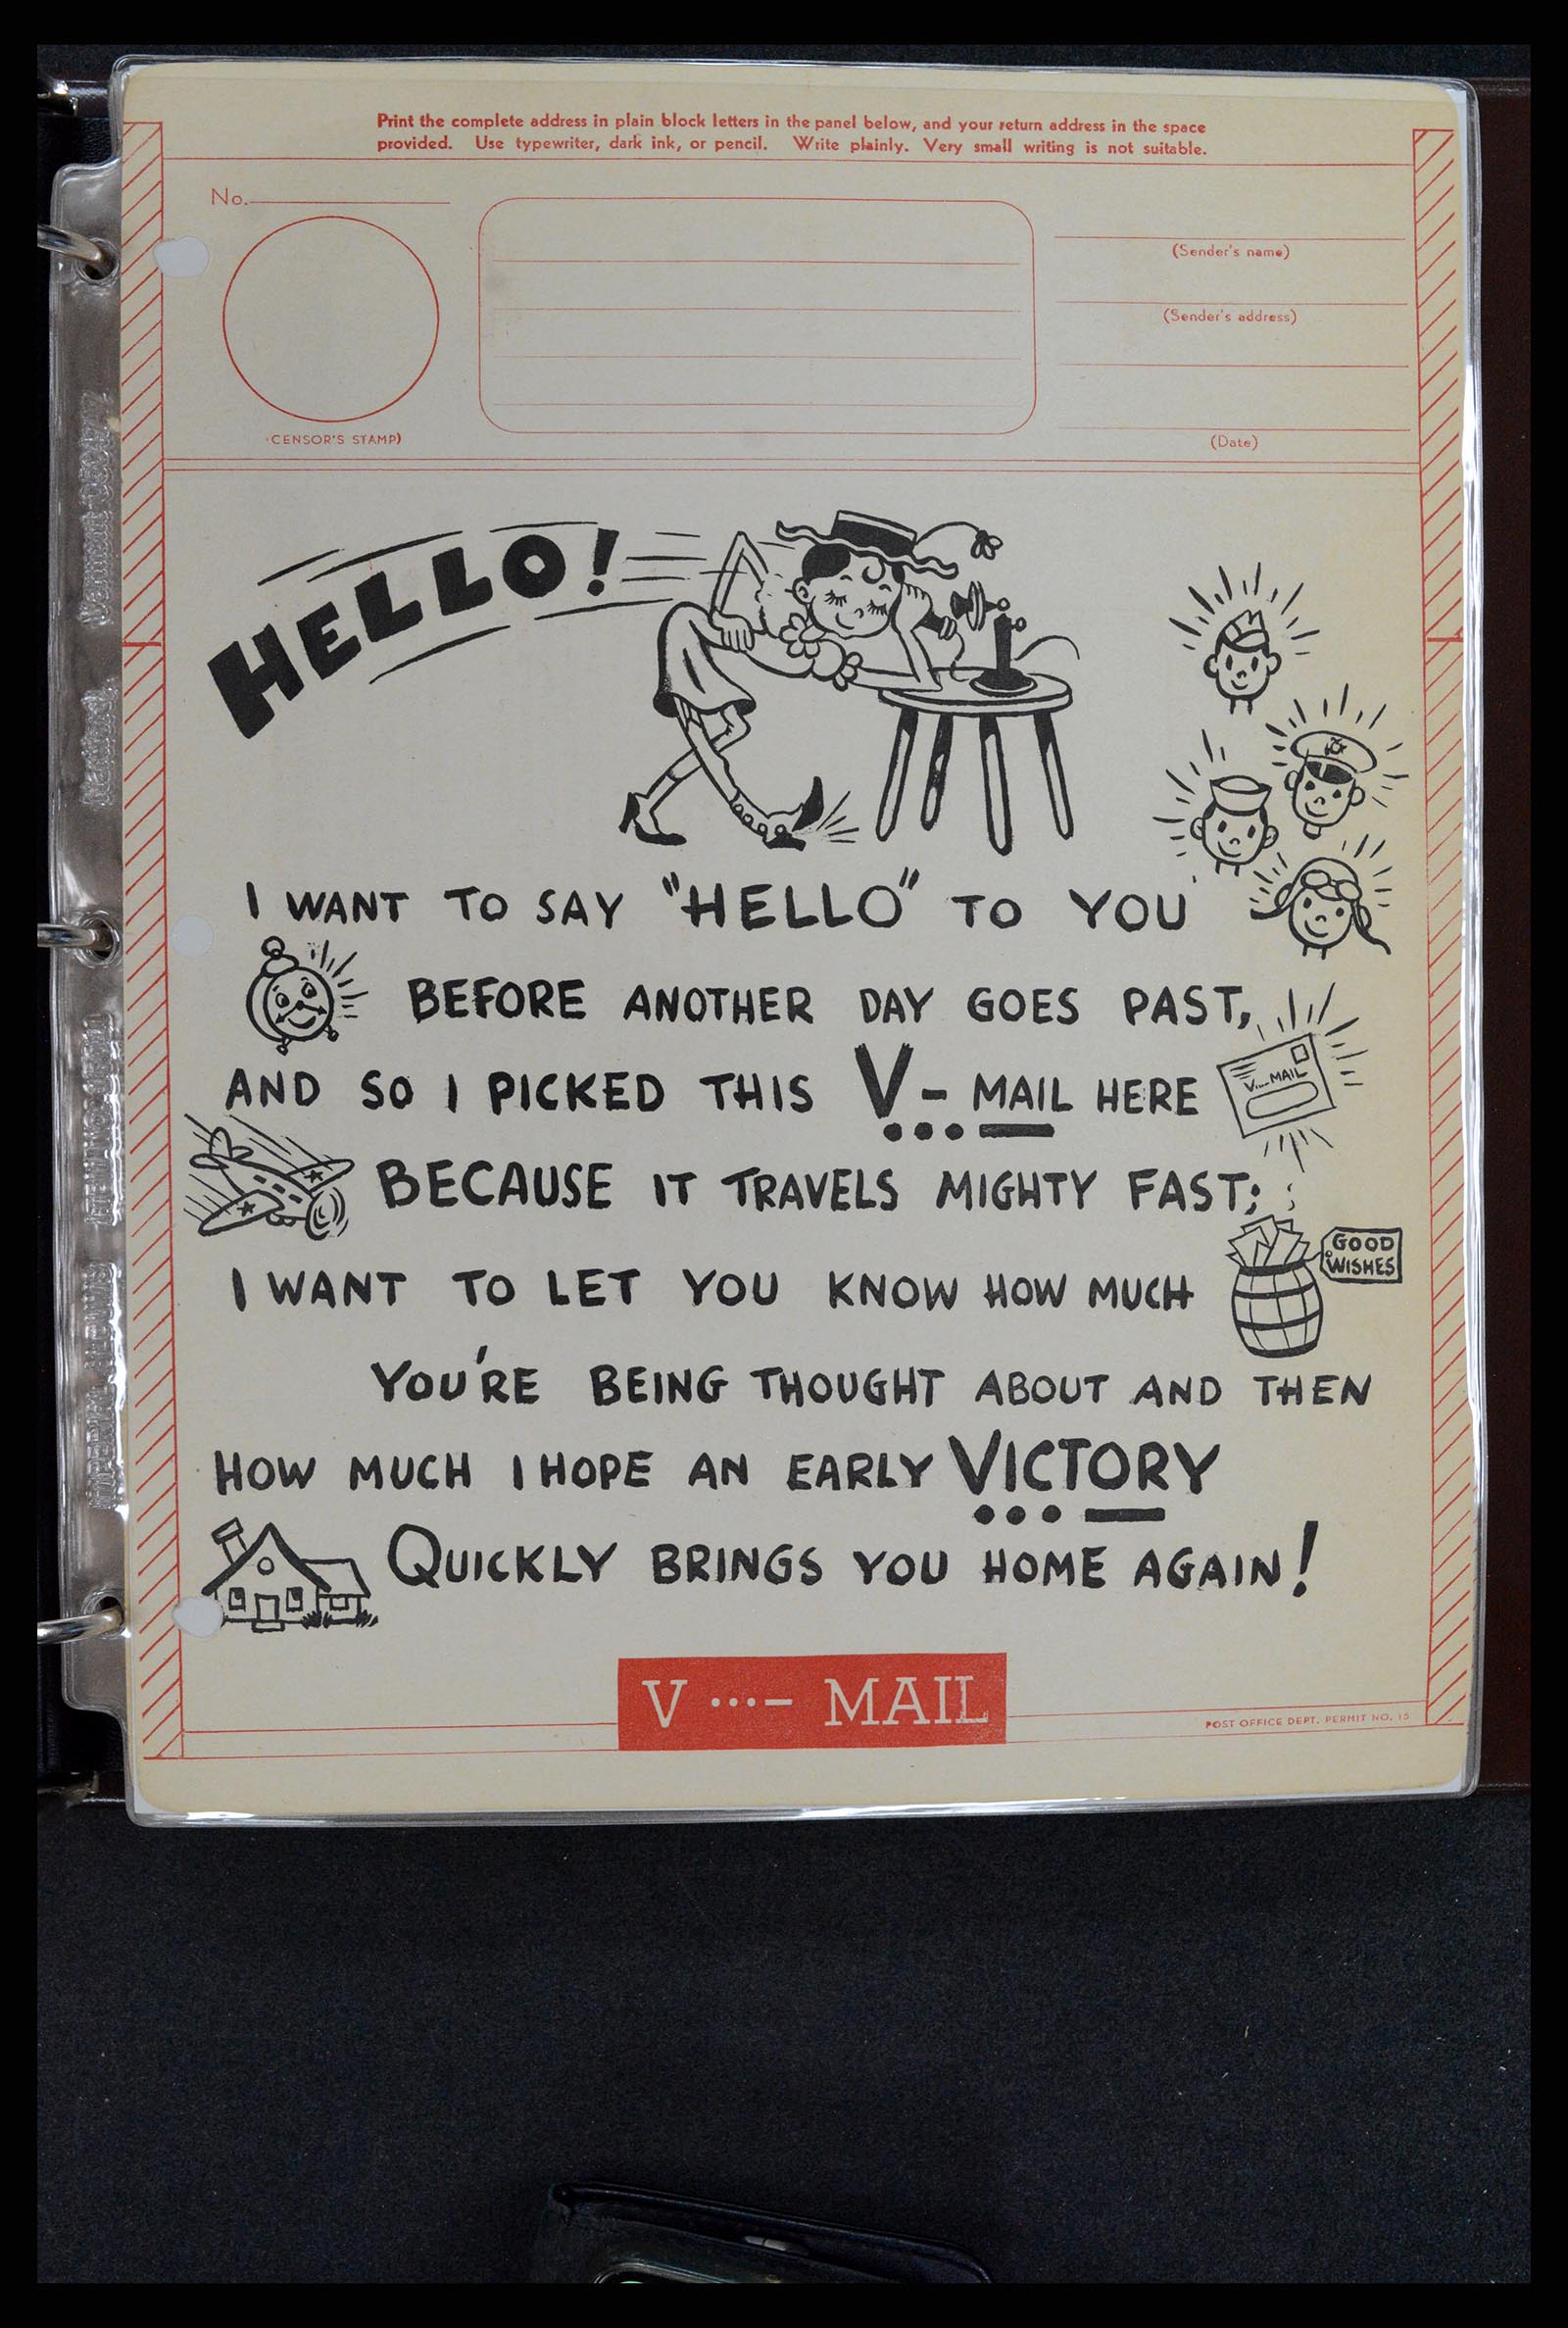 Print the complete address in plain block letters in the panel below, and your return address in the space
provided. Use typewriter, dark ink, or pencil. Write plainly. Very small writing is not suitable.
No.
(Sender's name)
(Sender's address)
(CENSOR'S STAMP)
(Date)
HELLO!
I WANT TO SAY "HELLO" TO YOU
BEFORE ANOTHER DAY GOES PAST,
AND SO I PICKED THIS V-MAIL HERE
V...-MAIL
BECAUSE IT TRAVELS MIGHTY FAST;
GOOD
WISHES
I WANT TO LET YOU KNOW HOW MUCH
YOU'RE BEING THOUGHT ABOUT AND THEN
HOW MUCH I HOPE AN EARLY VICTORY
QUICKLY BRINGS YOU HOME AGAIN!
V ...- MAIL
POST OFFICE DEPT. PERMIT NO. 15